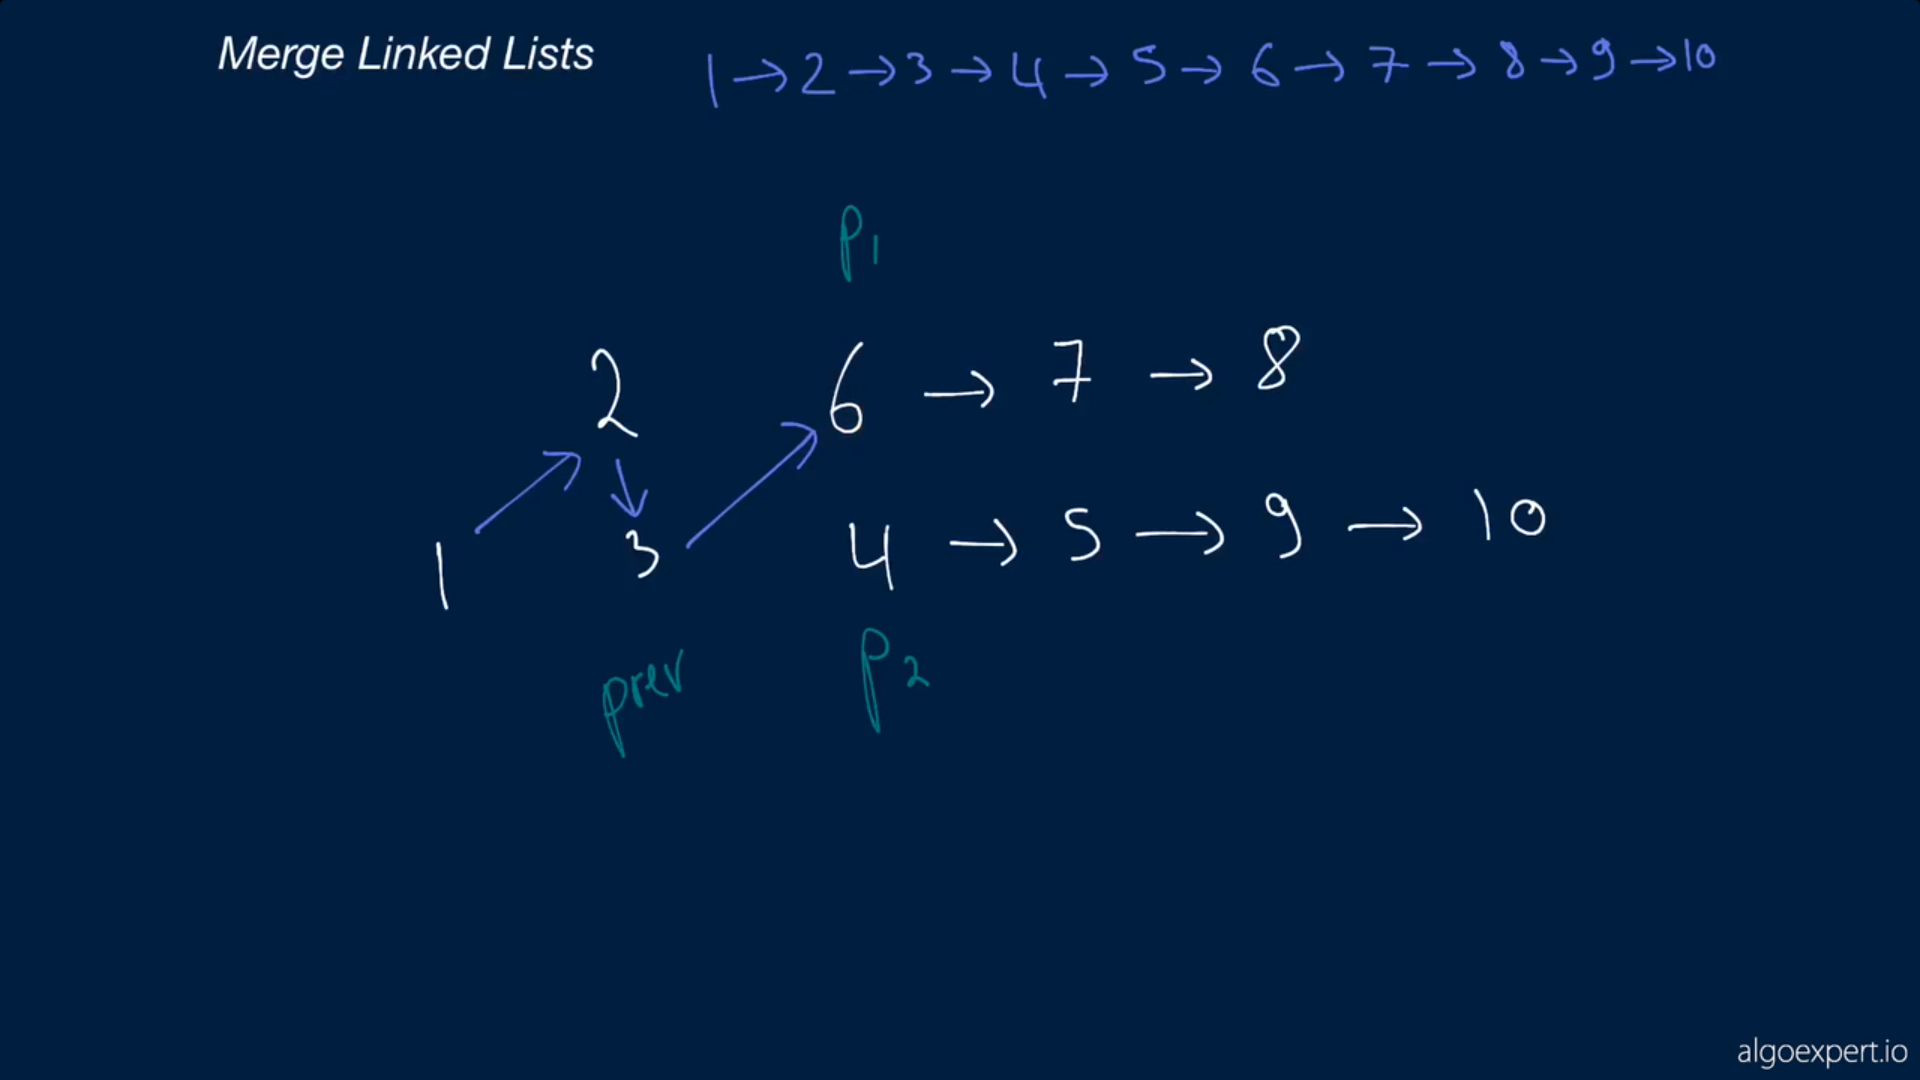 Merge Linked Lists
1 → 2 → 3 → 4 → 5 → 6 → 7 → 8 → 9 → 10
P1
2 6 → 7 → 8
1 3 4 → 5 → 9 → 10
prev P2
algoexpert.io